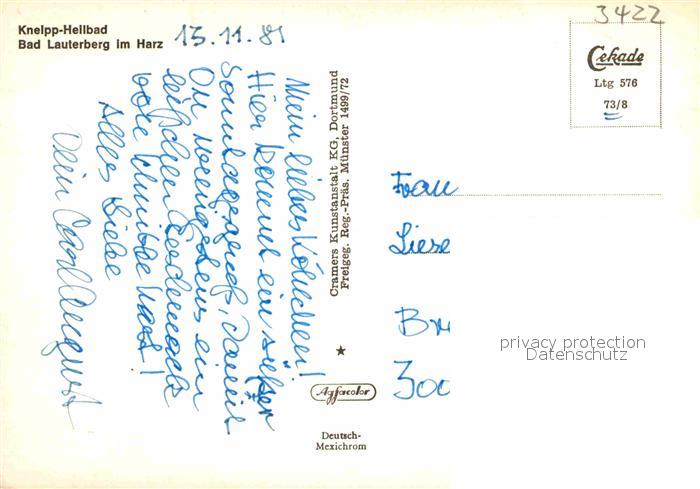 Kneipp-Heilbad
Bad Lauterberg im Harz
15.11.81
Mein liebes
Hier kommt ein süßer
Sonntagsgruß, damit
Du wenigstens ein
bißchen Geschmack
vom Munde hast!
Alles Liebe
Dein Carl August
Cramers Kunstanstalt KG, Dortmund
Freigeg. Reg.-Präs. Münster 1499/72
Agfacolor
Deutsch-
Mexichrom
3422
Cekade
Ltg 576
73/8
Frau
Liese
Br
300
privacy protection
Datenschutz